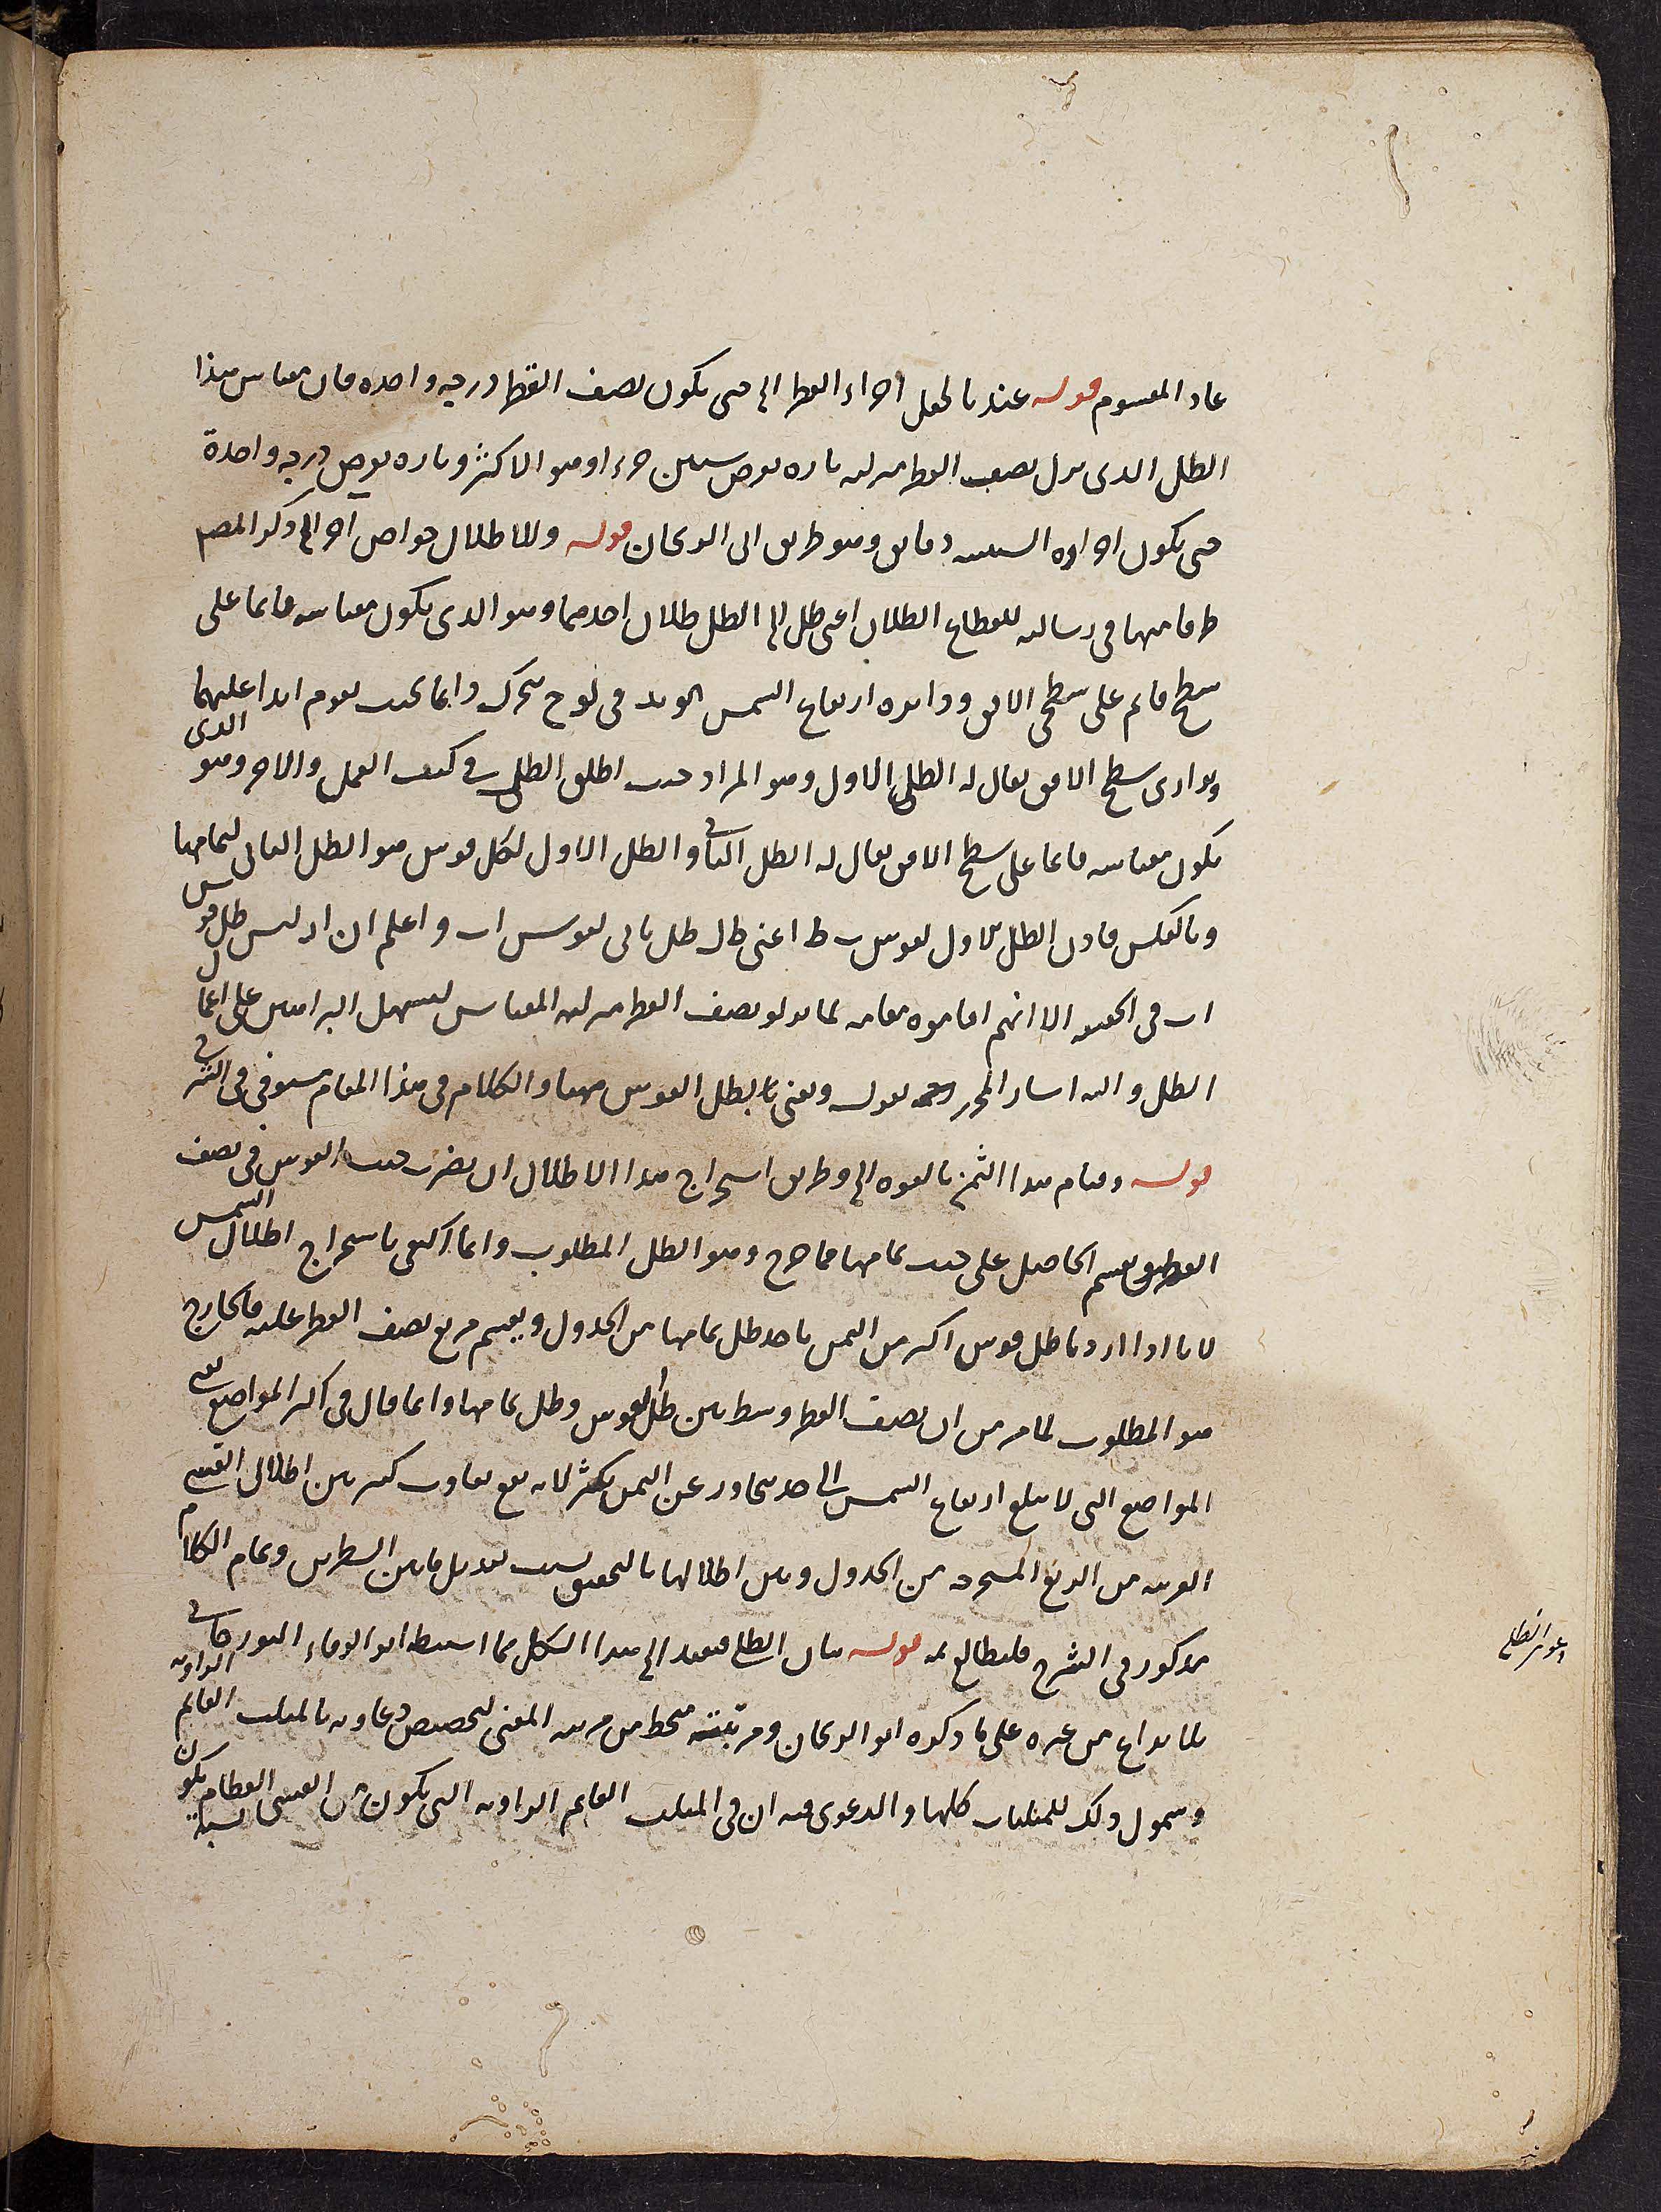 عاد المقسوم قوله عندنا لجعل اجزاء القطر الخ حتى يكون نصف القطر درجة واحدة فان مقياس هذا
الظل الذي نزل نصف القطر منزلته تارة يفرض ستين جزءا وهو الاكثر وتارة يفرض درجة واحدة
حتى يكون اجزاؤه الستينية دقايق وهو طريق ابي الريحان قوله وللاظلال خواص اخر الخ ذكر المصم
طرفا منها في رسالته للقطاع الظلان اعني ظل الخ الظل ظلان احدهما وهو الذي يكون مقياسه قائما على
سطح قايم على سطحي الافق ودايرة ارتفاع الشمس في لوح يتحرك دايما بحيث يقوم ابدا عليهما
ويوازي سطح الافق يقال له الظل الاول وهو المراد حيث اطلق الظل في كتب العمل والاخر وهو الذي
يكون مقياسه قائما على سطح الافق يقال له الظل الثاني والظل الاول لكل قوس هو الظل الثاني لتمامها
وبالعكس فاذن الظل الاول لقوس ب ط اعني ط ل ظل ثاني لقوس ا ب واعلم ان ا ر ليس ظل قوس
ا ب في الحقيقة الا انهم اقاموه مقامه لما نزلو نصف القطر منزلة المقياس ليسهل البراهين على اعمال
الظل واليه اشار المحرر بقوله ونعني بالظل القوس ههنا والكلام في هذا المقام مستوفى في الشرح
قوله وقيام هذا الثمن بالقوة الخ وطريق استخراج هذا الاظلال ان يضرب جيب القوس في نصف
القطر ويقسم الحاصل على جيب تمامها فما خرج وهو الظل المطلوب وانما اكتفى باستخراج اظلال الثمن
لانا اذا اردنا ظل قوس اكثر من الثمن ناخذ ظل تمامها من الجدول ويقسم مربع نصف القطر عليه فالخارج
هو المطلوب لما مر من ان نصف القطر وسط بين ظل القوس وظل تمامها وانما قال في اكثر المواضع
المواضع التي لا يبلغ ارتفاع الشمس الى حد يتجاوز عن الثمن بكثر لانه يقع تفاوت كثير بين اظلال القسي
القريبة من الربع المستخرجة من الجدول وبين اظلالها بالتحقيق بسبب تعديل ما بين السطرين وتمام الكلام
مذكور في الشرح فليطالع ثمه قوله بيان الظلي فنقيد الخ هذا الشكل مما استنبطه ابو الوفاء البوزجاني
بلا نزاع من غيره على ما ذكره ابو الريحان ومرتبته منحط من مرتبة المغني لتخصيص دعاويه بالمثلث القايم الزاوية
وشمول ذلك للمثلثات كلها والدعوى فيه ان في المثلث القايم الزاوية التي يكون من القسي العظام يكون نسبة
دعوى الظلي